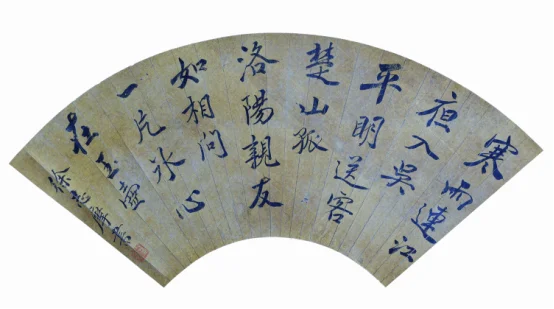 寒雨連江
夜入吳
平明送客
楚山孤
洛陽親友
如相問
一片冰心
在玉壺
徐志摩書